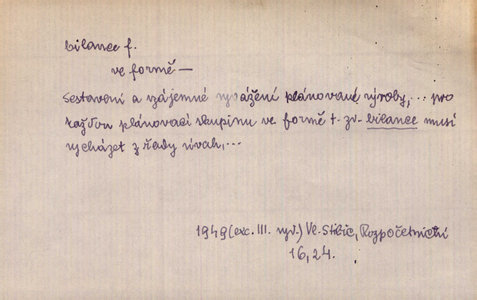 bilance f.
ve formě —
Sestavení a vzájemné vyvážení plánované výroby, ... pro
každou plánovací skupinu ve formě t. zv. bilance musí
vycházet z řady úvah, ...
1949 (exc. III. vyd.) Vl. Stibic, Rozpočetnictví
16, 24.